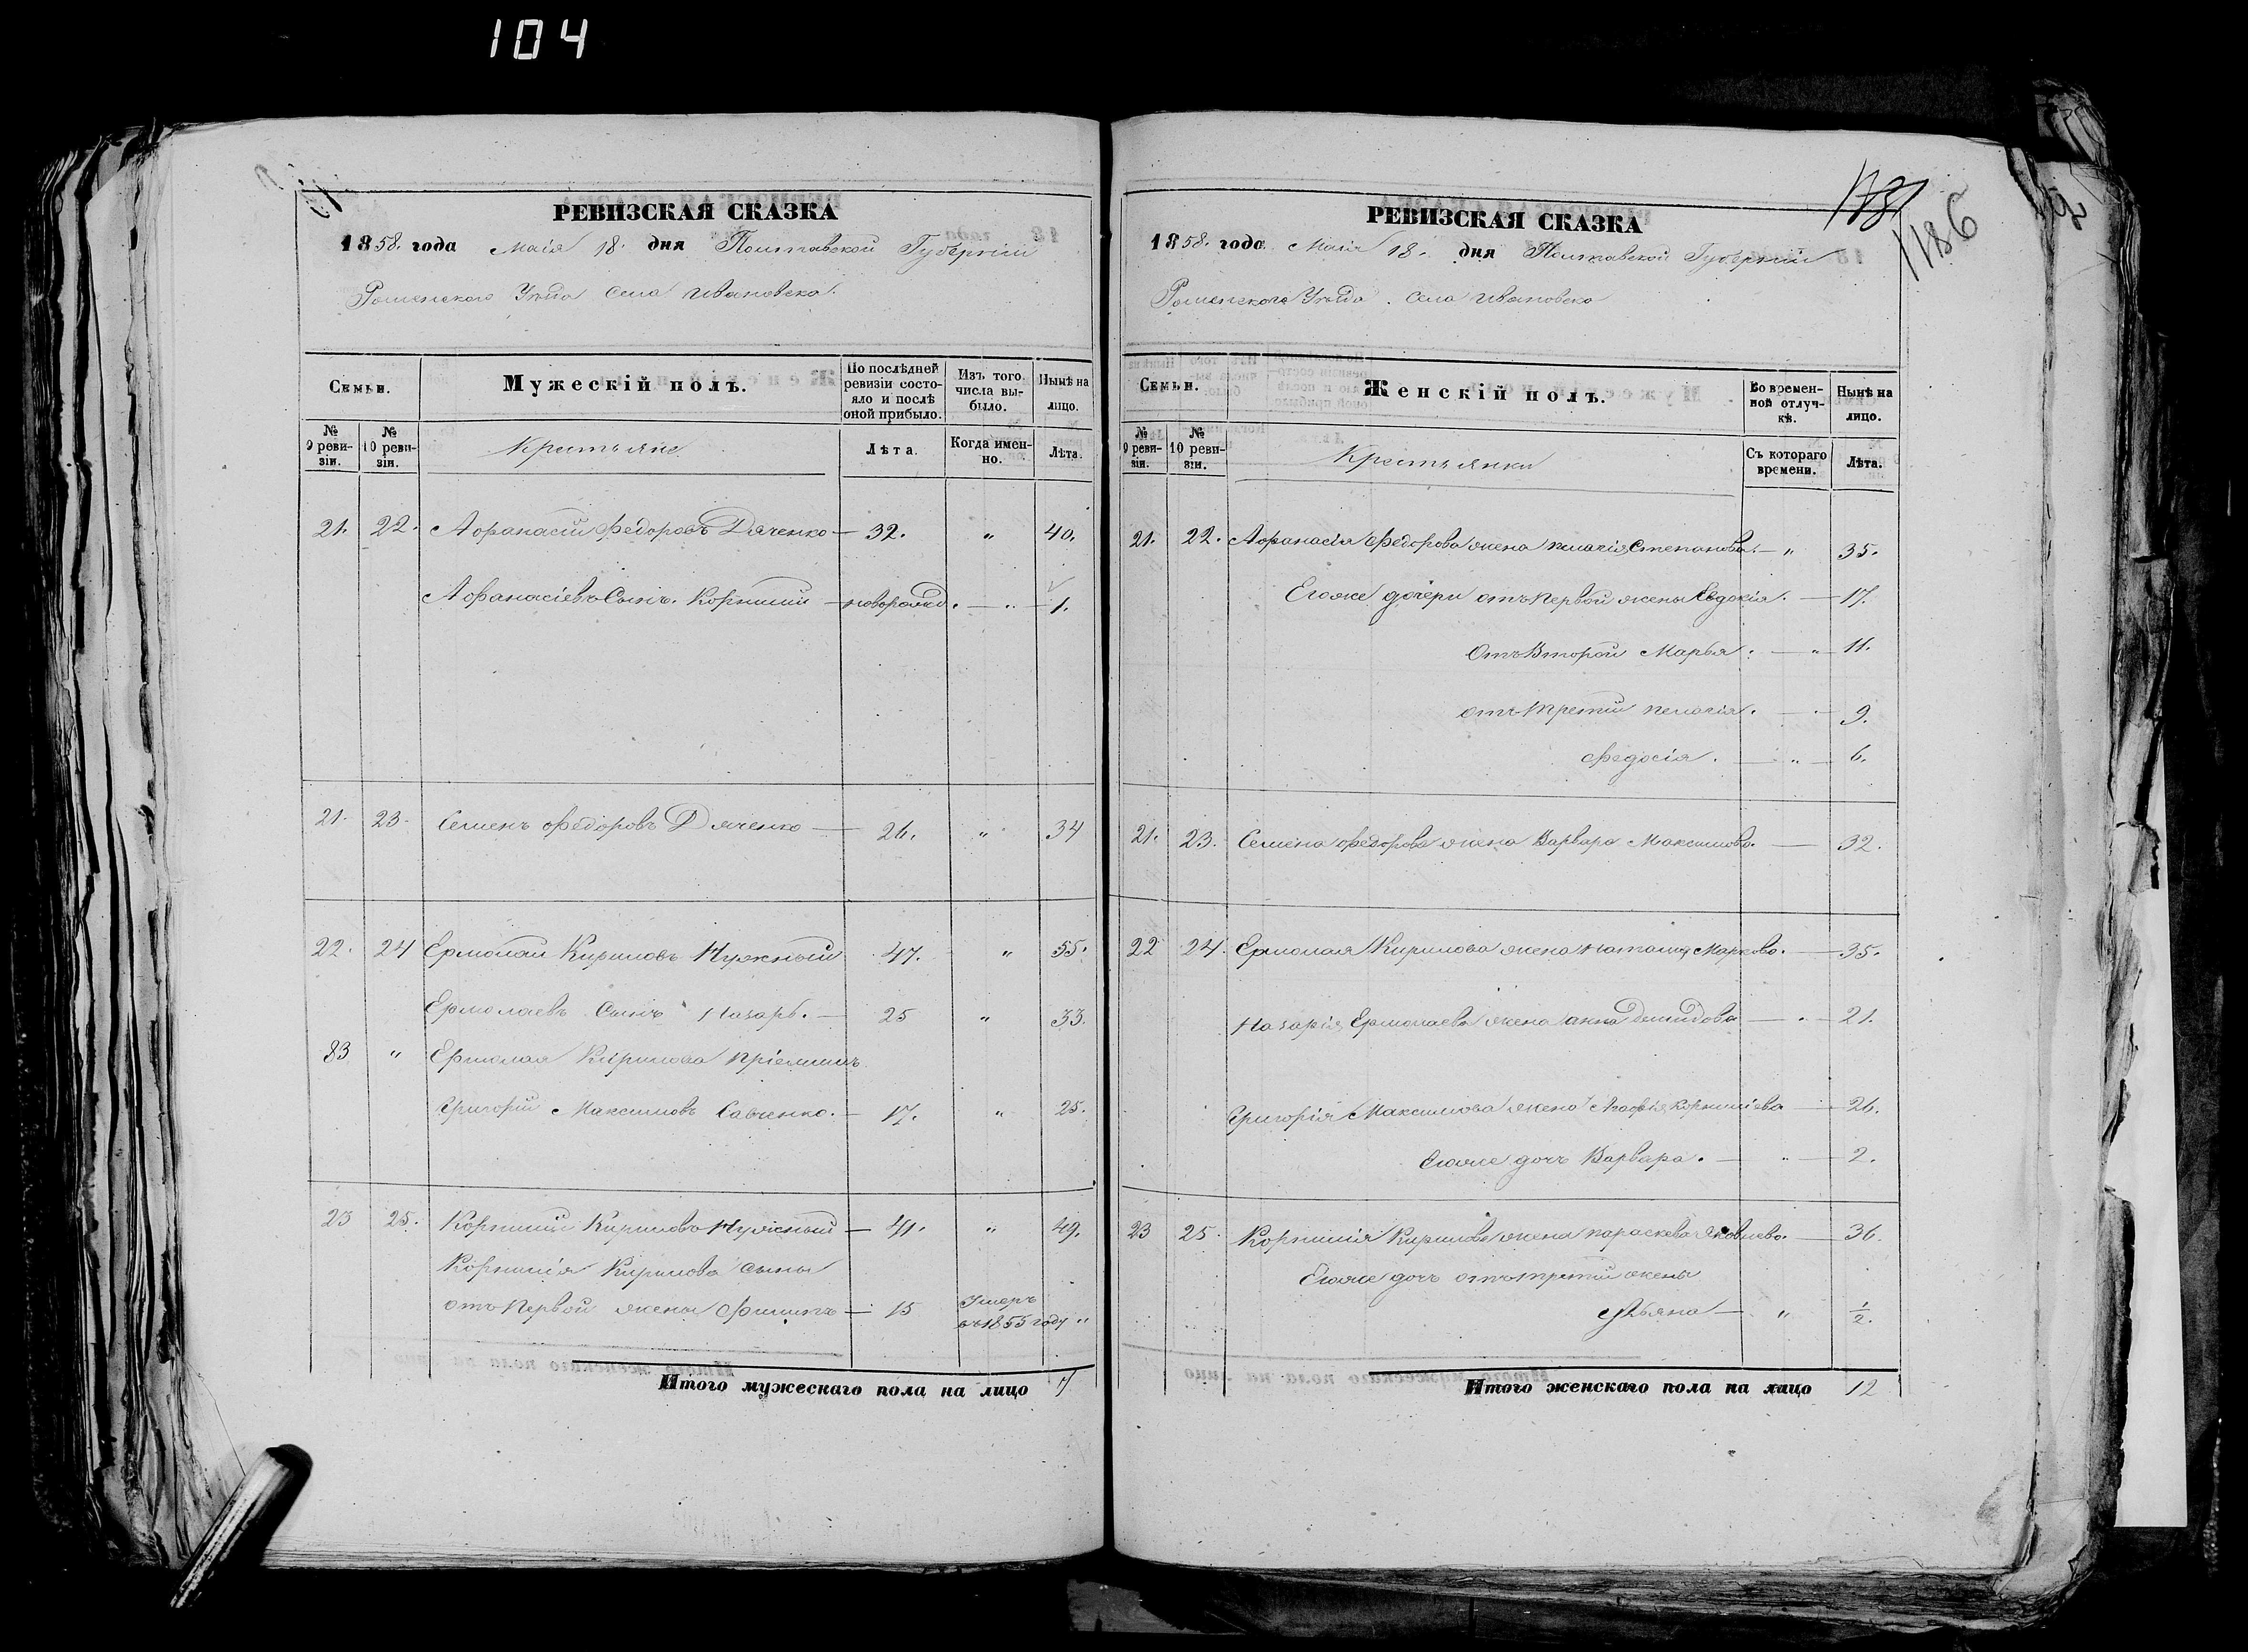 104
РЕВИЗСКАЯ СКАЗКА
1858. года Маія 18. дня Полтавской Губерніи
Роменского Уѣзда Села Ивановско.
Семьи.
Мужескій полъ.
По послѣдней ревизіи состояло и послѣ оной прибыло.
Изъ того числа выбыло.
Нынѣ на лицо.
№ 9 ревизіи.
№ 10 ревизіи.
Крестьяне
Лѣта.
Когда именно.
Лѣта.
21. 22. Афанасій Федоровъ Дяченко — 32. " 40.
Афанасіевъ Сынъ. Корнилій — новорожд. — " — 1.
21. 23. Семенъ Федоровъ Дяченко — 26. " 34
22. 24 Ермолай Кириловъ Нужный 47. " 55.
Ермолаевъ Сынъ Назаръ. — 25 " 33.
83 " Ермолая Кирилова пріемышъ
Григорій Максимовъ Савченко. — 17. " 25.
23 25. Корнилій Кириловъ Нужный — 41. " 49.
Корнилія Кирилова сыны
отъ первой жены Филипъ — 15 Умеръ въ 1855 году "
Итого мужескаго пола на лицо 7
1186
РЕВИЗСКАЯ СКАЗКА
1858. года Маія 18. дня Полтавской Губерніи
Роменского Уѣзда. Села Ивановско
Семьи.
Женскій полъ.
Во временной отлучкѣ.
Нынѣ на лицо.
№ 9 ревизіи.
№ 10 ревизіи.
Крестьянки
Съ котораго времени.
Лѣта.
21. 22. Афанасія Федорова жена пелагія Степанова. — " 35.
Егоже дочери отъ первой жены Евдокія. — 17.
Отъ Второй Марья. — " — 11.
отъ третій пелагія. — " — 9.
Федосія. — " — 6.
21. 23. Семена Федорова жена Варвара Максимова. — 32.
22 24. Ермолая Кирилова жена Наталія Маркова. — 35.
Назарія Ермолаева жена анна Демидова — " — 21.
Григорія Максимова жена Агафія Корниліева — 26.
Егоже дочь Варвара. — " — 2.
23 25. Корнилія Кирилова жена параскева Яковлева. — 36.
Егоже дочь отъ третій жены
Ульяна — " 1/2.
Итого женскаго пола на лицо 12